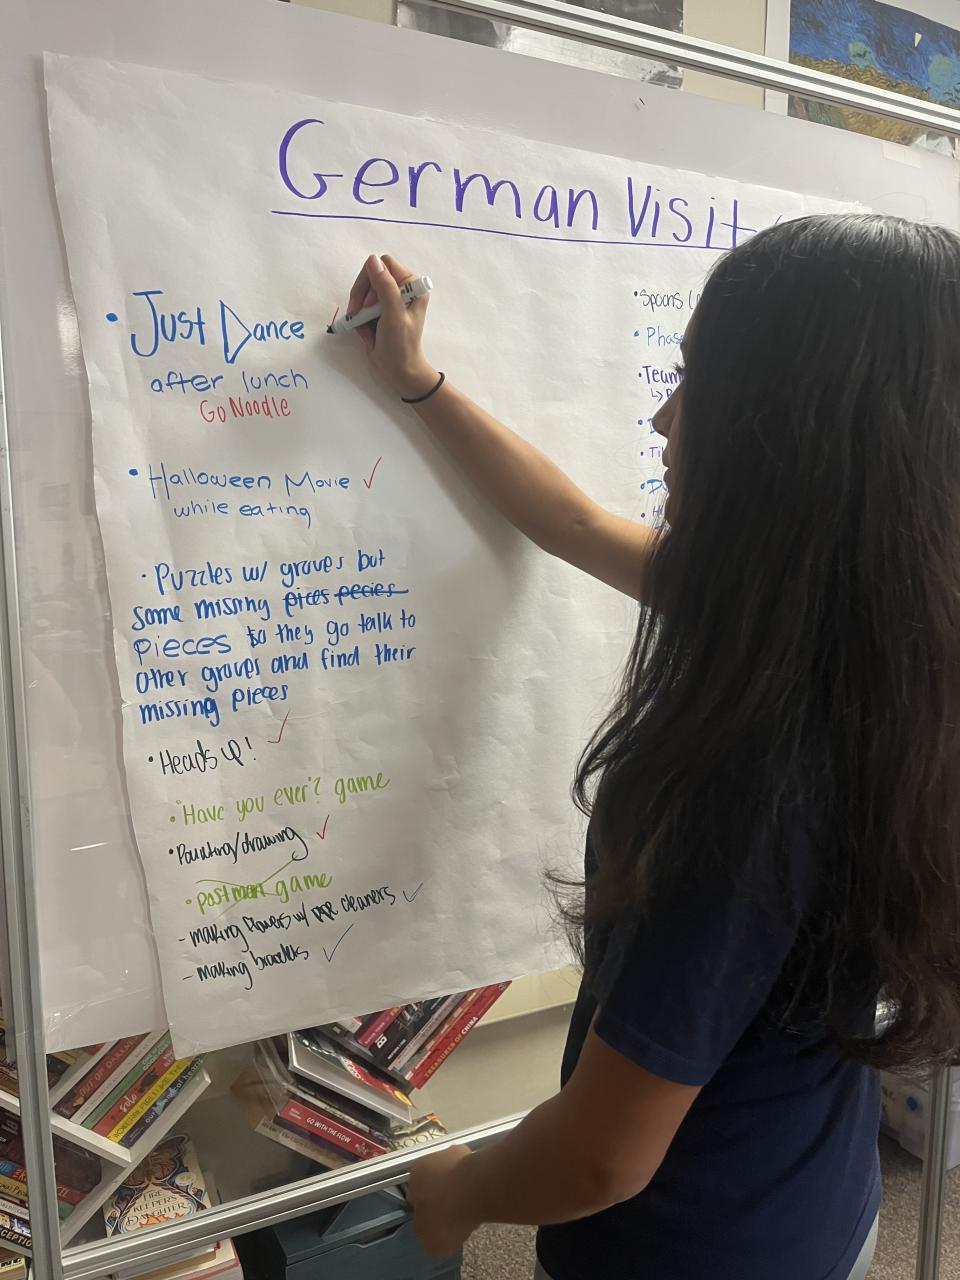 German Visit
• Just Dance
after lunch
Go Noodle
• Halloween Movie ✓
while eating
• Puzzles w/ groups but
some missing pices pecies
pieces so they go talk to
other groups and find their
missing pieces
• Heads up! ✓
• Have you ever? game
• Painting/drawing ✓
• postman game
- making flowers w/ pipe cleaners ✓
- making bracelets ✓
• Spoons
• Phase
• Team
TREASURES OF CHINA
GO WITH THE FLOW
BOOK
OUT OF DARKNESS
solo
FIRE
KEEPER'S
DAUGHTER